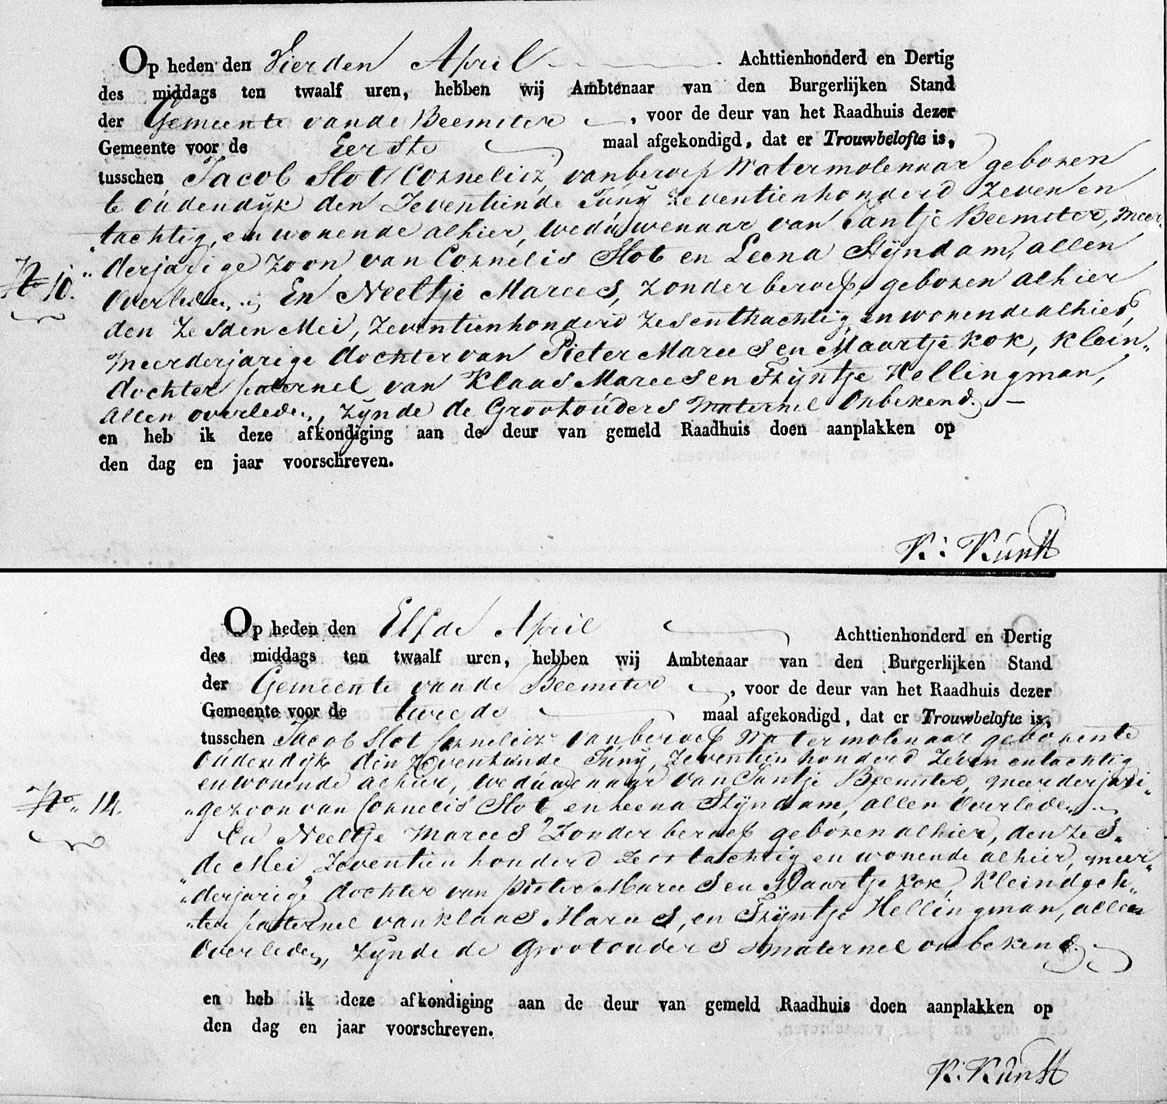 Op heden den Vierden April Achttienhonderd en Dertig
des middags ten twaalf uren, hebben wij Ambtenaar van den Burgerlijken Stand
der Gemeente van de Beemster , voor de deur van het Raadhuis dezer
Gemeente voor de Eerste maal afgekondigd, dat er Trouwbelofte is,
tusschen Jacob Slot Cornelisz, van beroep Watermolenaar geboren
te Oudendijk den Zeventiende Juny Zeventienhonderd Zeven en
tachtig, en wonende alhier, weduwenaar van Jantje Beemster, meer
derjarige Zoon van Cornelis Slot en Leena Stijndam, allen
Overleden, En Neeltje Marees, Zonder beroep, geboren alhier
No 10.
den Zesden Mei, Zeventienhonderd Zesenthachtig, en wonende alhier,
meerderjarige dochter van Pieter Marees en Maartje Kok, klein„
dochter paternel van Klaas Marees en Trijntje Hellingman,
allen overleden, Zynde de Grootouders maternel Onbekend. —
en heb ik deze afkondiging aan de deur van gemeld Raadhuis doen aanplakken op
den dag en jaar voorschreven.
K: Kunst
Op heden den Elfde April Achttienhonderd en Dertig
des middags ten twaalf uren, hebben wij Ambtenaar van den Burgerlijken Stand
der Gemeente van de Beemster , voor de deur van het Raadhuis dezer
Gemeente voor de twede maal afgekondigd, dat er Trouwbelofte is,
tusschen Jacob Slot Cornelisz van beroep Watermolenaar geboren te
Oudendijk den Zeventiende Juny, Zeventien honderd Zeven en tachtig
en wonende alhier, weduwenaar van Jantje Beemster, meerderjari„
„ge zoon van Cornelis Slot en Leena Stijndam, allen Overleden,
No. 14.
En Neeltje Marees Zonder beroep geboren alhier, den Zes„
„de Mei Zeventien honderd Zes tachtig en wonende alhier, meer„
„derjarige dochter van Pieter Marees en Maartje Kok, Kleindoch„
„ter paternel van Klaas Marees, en Trijntje Hellingman, allen
Overleden, Zynde de Grootouders maternel onbekend
en heb ik deze afkondiging aan de deur van gemeld Raadhuis doen aanplakken op
den dag en jaar voorschreven.
K: Kunst